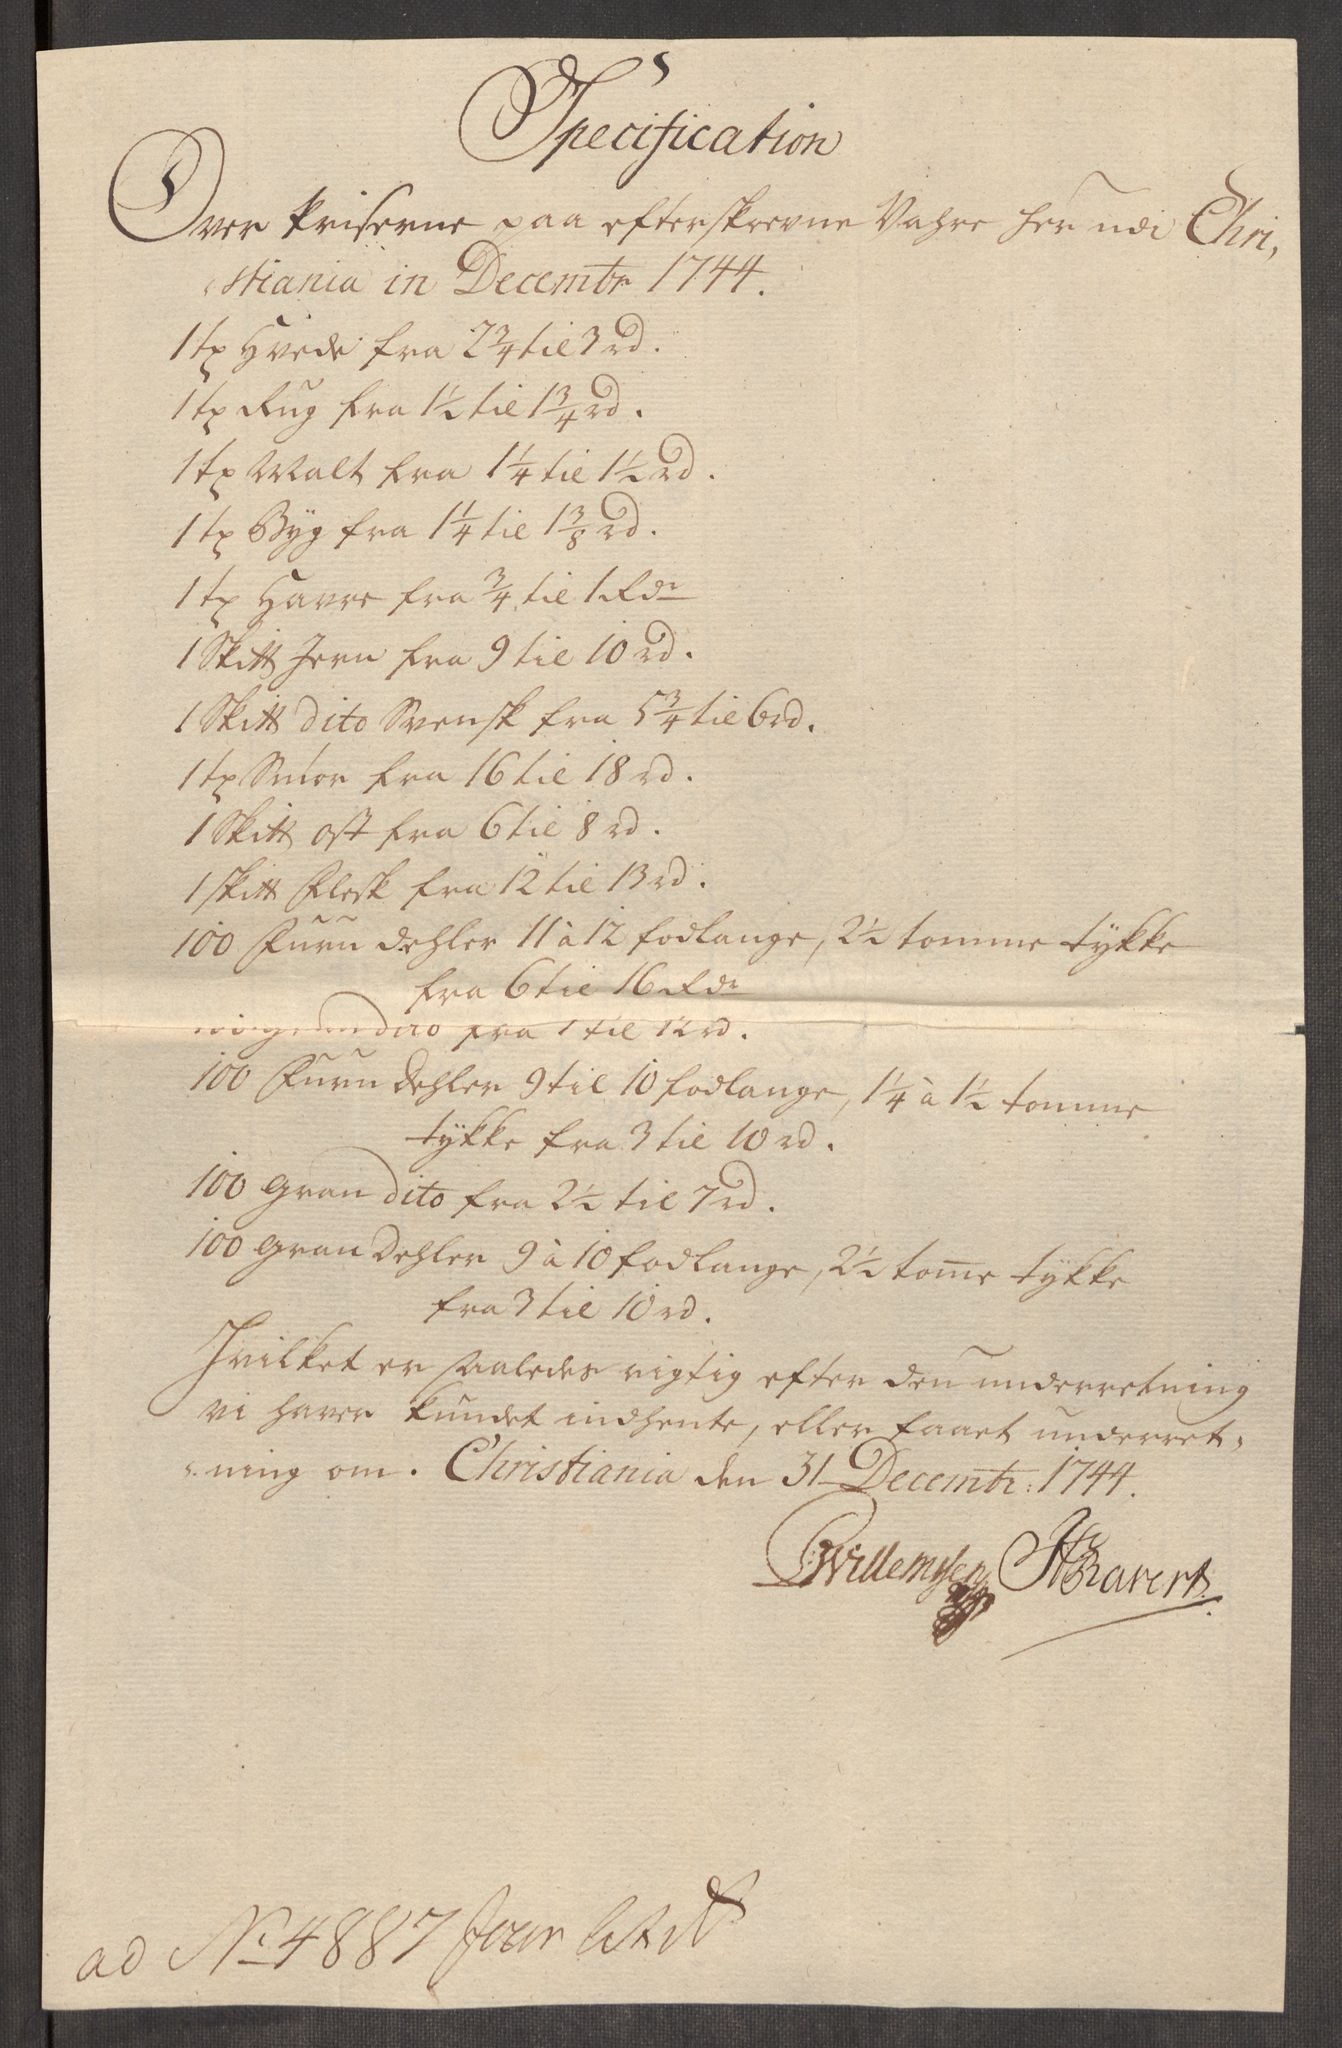 Specification
Over Priserne paa efterskrevne Vahre her udi Chri,
stiania in Decembr 1744.
1 tø Hvede fra 2 3/4 til 3 rd.
1 tø Rug fra 1 1/2 til 1 3/4 rd.
1 tø Malt fra 1 1/4 til 1 1/2 rd.
1 tø Byg fra 1 1/4 til 1 3/8 rd.
1 tø Havre fra 3/4 til 1 Rdr
1 Skitt Jern fra 9 til 10 rd.
1 Skitt dito Svensk fra 5 3/4 til 6 rd.
1 tø Smør fra 16 til 18 rd.
1 Skitt ost fra 6 til 8 rd.
1 skitt Flesk fra 12 til 13 rd.
100 Furu dehler 11 à 12 fodlange, 2 1/2 tomme tykke
fra 6 til 16 Rdr
dito fra til 12 rd.
100 Furu Dehler 9 til 10 fodlange, 1 1/4 à 1 1/2 tomme
tykke fra 3 til 10 rd.
100 gran dito fra 2 1/2 til 7 rd.
100 gran Dehler 9 à 10 fodlange, 2 1/2 tom̅e tykke
fra 3 til 10 rd.
Hvilket er saaledes rigtig efter den underretning
vi haver kundet indhente, eller faaet underret,
ning om. Christiania den 31 Decembr: 1744.
Willemsen Ravert
ad No 4887 Jour